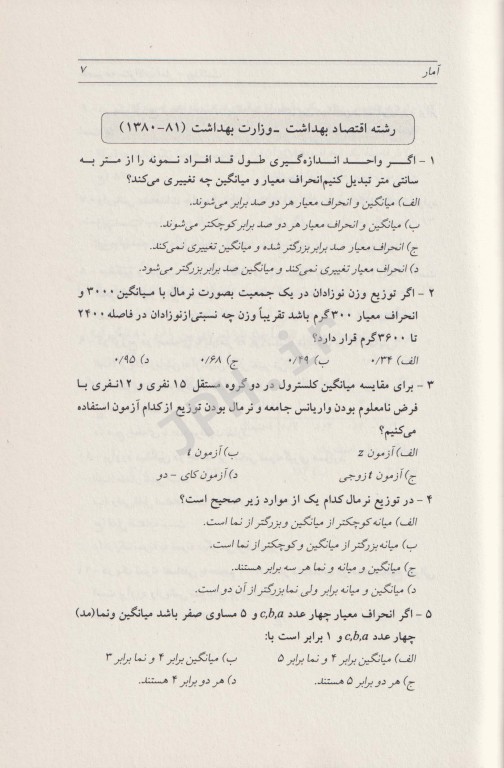 آمار ۷
رشته اقتصاد بهداشت -وزارت بهداشت (۸۱-۱۳۸۰)
۱ - اگر واحد اندازه‌گیری طول قد افراد نمونه را از متر به
سانتی متر تبدیل کنیم‌انحراف معیار و میانگین چه تغییری می‌کند؟
الف) میانگین و انحراف معیار هر دو صد برابر می‌شوند.
ب) میانگین و انحراف معیار هر دو صد برابر کوچکتر می‌شوند.
ج) انحراف معیار صد برابر بزرگتر شده و میانگین تغییری نمی‌کند.
د) انحراف معیار تغییری نمی‌کند و میانگین صد برابر بزرگتر می‌شود.
۲ - اگر توزیع وزن نوزادان در یک جمعیت بصورت نرمال با میانگین ۳۰۰۰ و
انحراف معیار ۳۰۰گرم باشد تقریباً وزن چه نسبتی‌ازنوزادان در فاصله ۲۴۰۰
تا ۳۶۰۰گرم قرار دارد؟
الف) ۰/۳۴ ب) ۰/۴۹ ج) ۰/۶۸ د) ۰/۹۵
۳ - برای مقایسه میانگین کلسترول در دو گروه مستقل ۱۵ نفری و ۱۲نفری با
فرض نامعلوم بودن واریانس جامعه و نرمال بودن توزیع از کدام آزمون استفاده
می‌کنیم؟
الف) آزمون z ب) آزمون t
ج) آزمون t زوجی د) آزمون کای - دو
۴ - در توزیع نرمال کدام یک از موارد زیر صحیح است؟
الف) میانه کوچکتر از میانگین و بزرگتر از نما است.
ب) میانه بزرگتر از میانگین و کوچکتر از نما است.
ج) میانگین و میانه و نما هر سه برابر هستند.
د) میانگین و میانه برابر ولی نما بزرگتر از آن دو است.
۵ - اگر انحراف معیار چهار عدد c,b,a و ۵ مساوی صفر باشد میانگین ونما(مد)
چهار عدد c,b,a و ۱ برابر است با:
الف) میانگین برابر ۴ و نما برابر ۵ ب) میانگین برابر ۴ و نما برابر ۳
ج) هر دو برابر ۵ هستند. د) هر دو برابر ۴ هستند.
JPH.ir